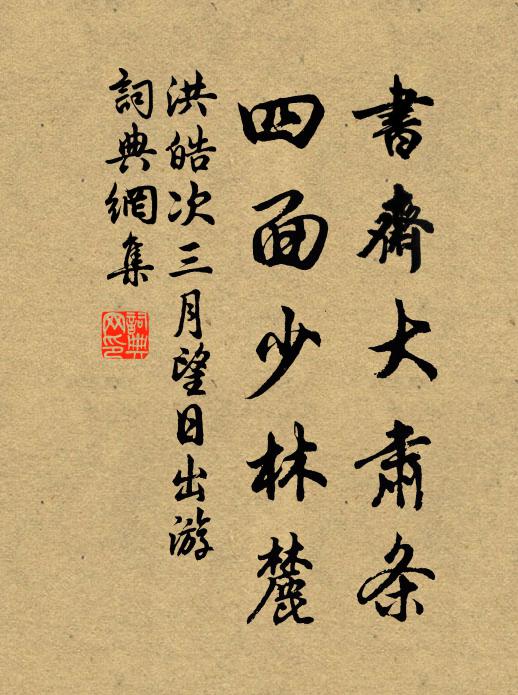 書齋大肅条
四面少林麓
洪皓次三月望日出游
詞典網集
詞典
网印